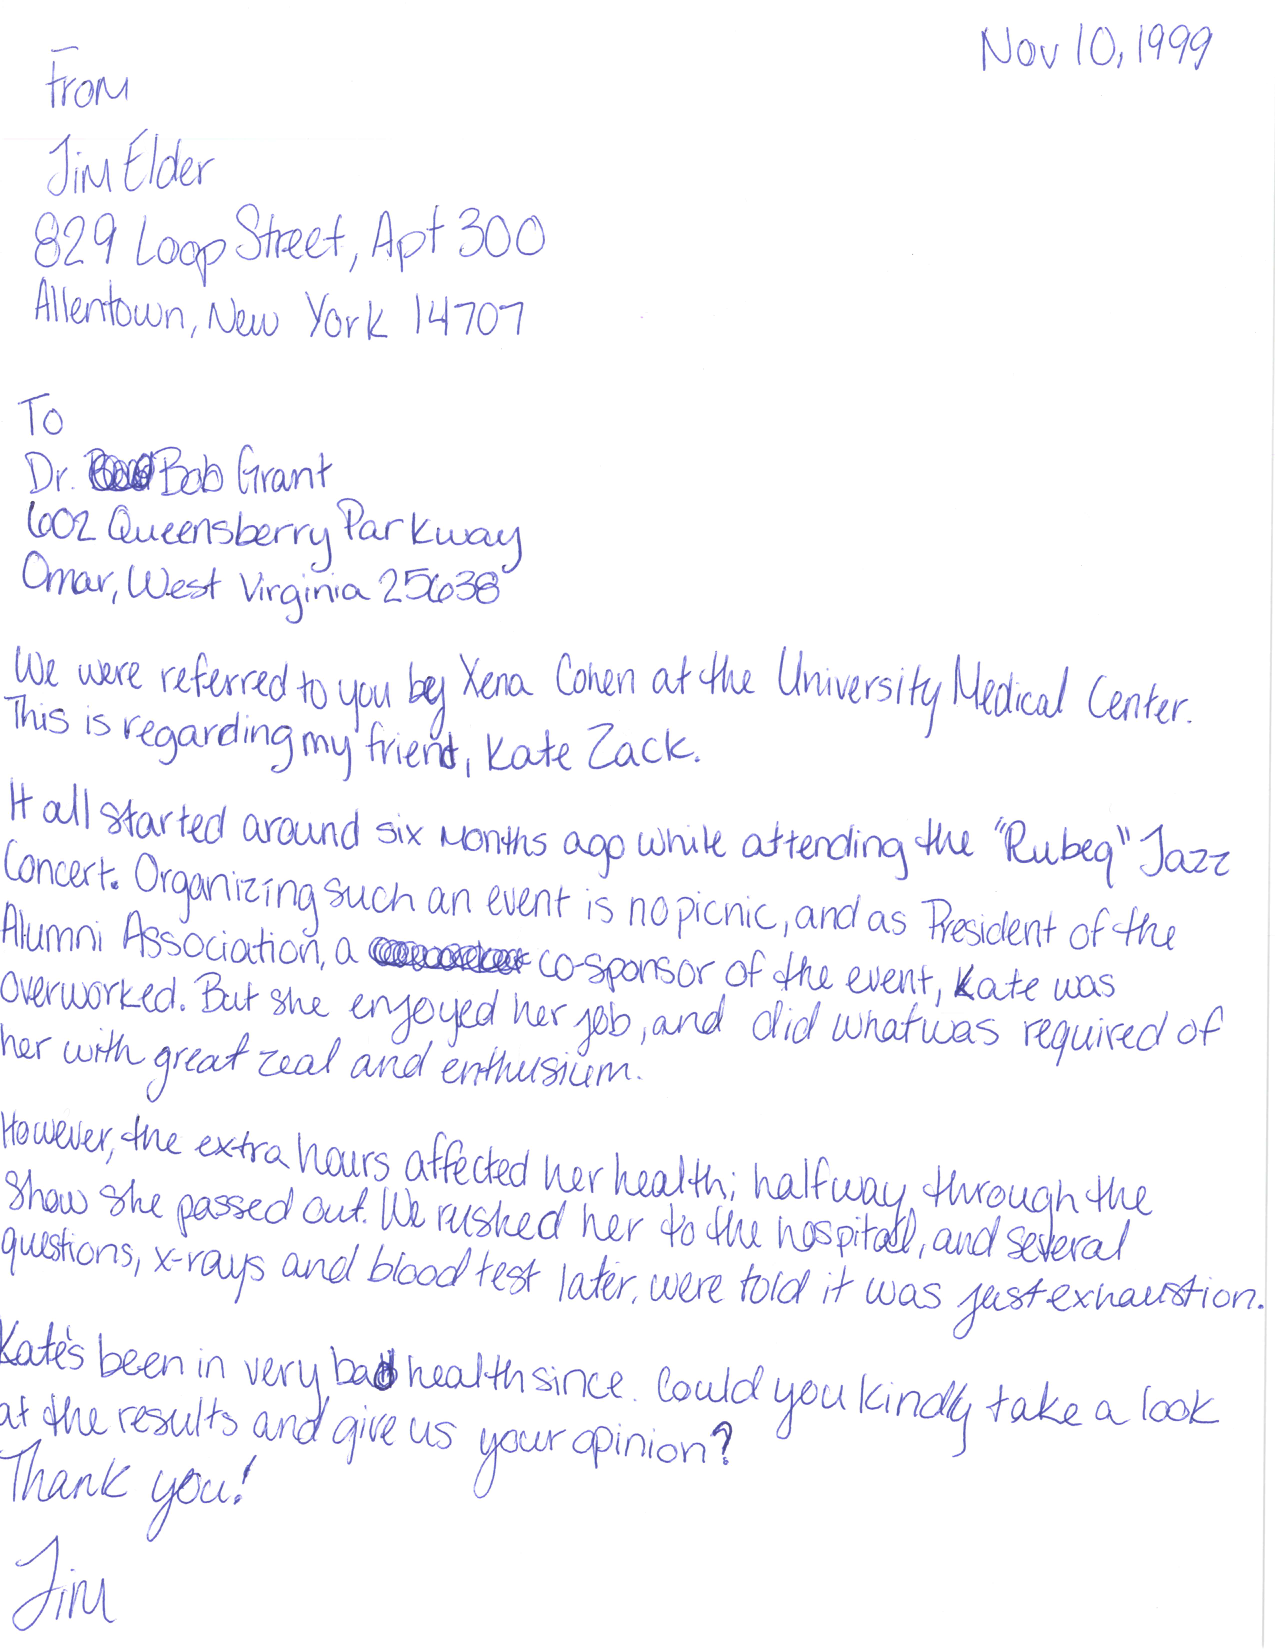 Nov 10, 1999
From
Jim Elder
829 Loop Street, Apt 300
Allentown, New York 14707
To
Dr. Bob Grant
602 Queensberry Parkway
Omar, West Virginia 25638
We were referred to you by Xena Cohen at the University Medical Center.
This is regarding my friend, Kate Zack.
It all started around six months ago while attending the "Rubeq" Jazz
Concert. Organizing such an event is no picnic, and as President of the
Alumni Association, a co-sponsor of the event, Kate was
overworked. But she enjoyed her job, and did what was required of
her with great zeal and enthusium.
However, the extra hours affected her health; halfway through the
show she passed out. We rushed her to the hospital, and several
questions, x-rays and blood test later, were told it was just exhaustion.
Kate's been in very bad health since. Could you kindly take a look
at the results and give us your opinion?
Thank you!
Jim